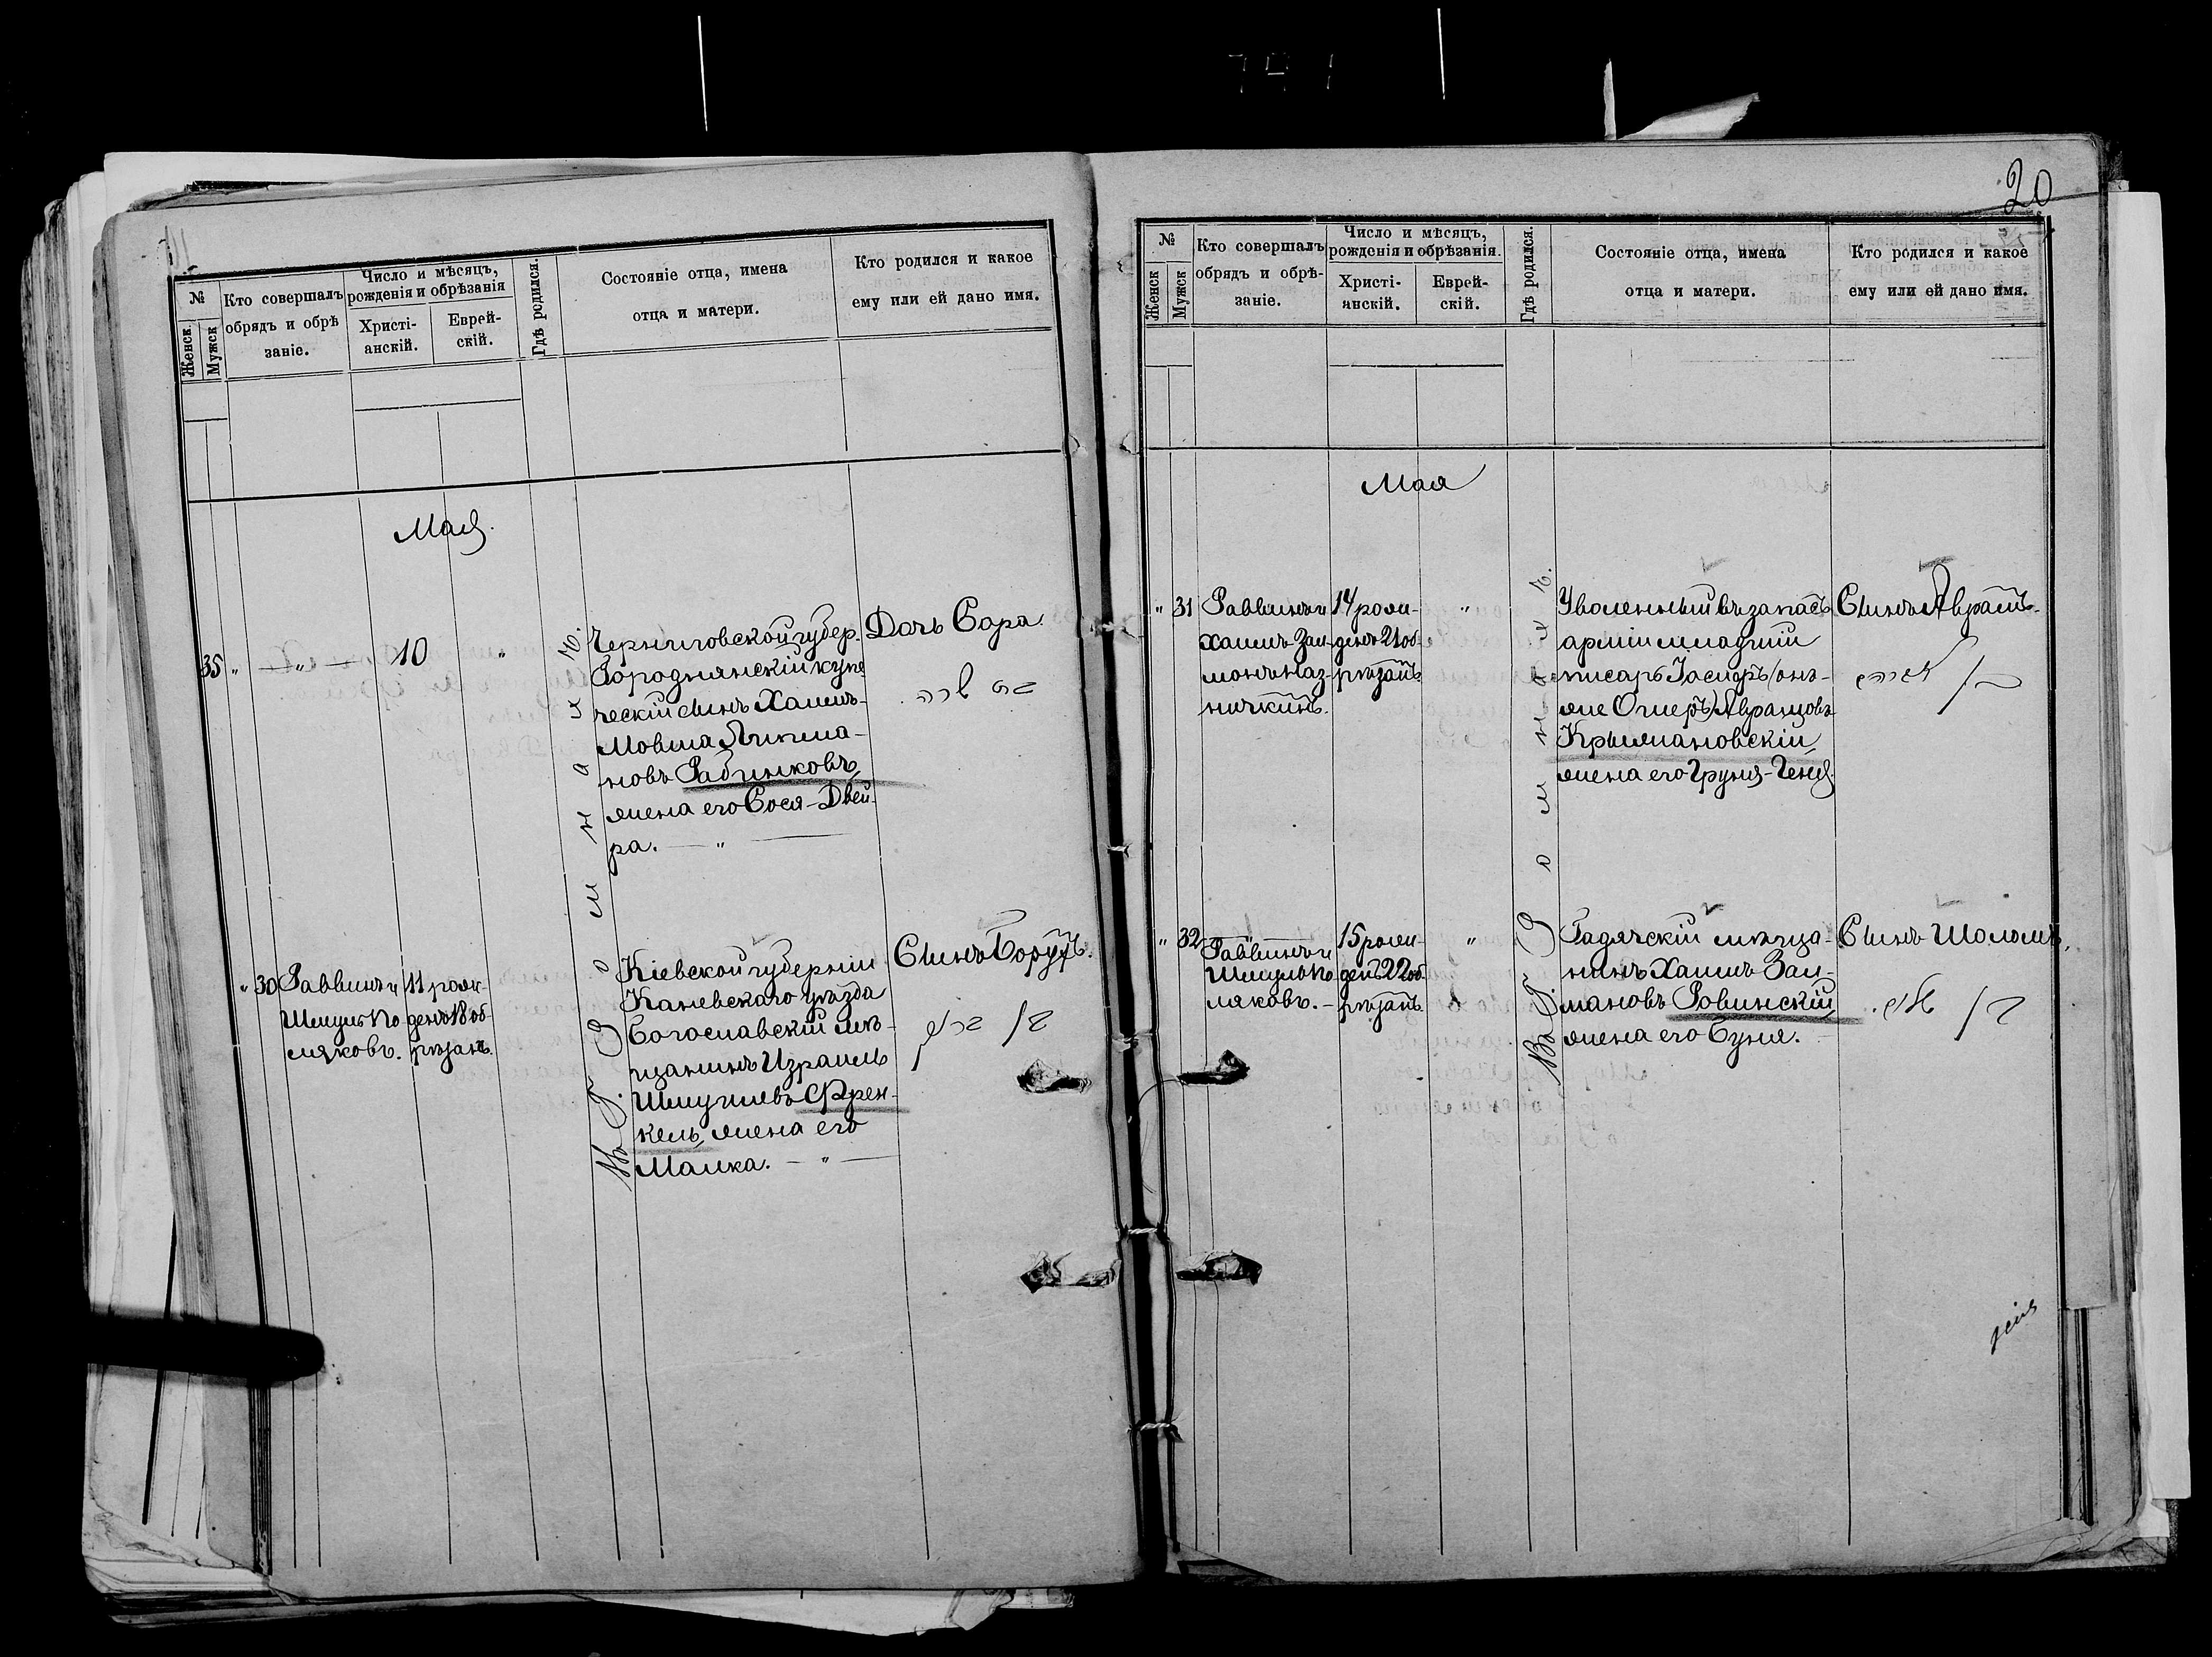 №
Женск
Мужск
Кто совершалъ
обрядъ и обрѣ
заніе.
Число и мѣсяцъ,
рожденія и обрѣзанія
Христі-
анскій.
Еврей-
скій.
Гдѣ родился.
Состояніе отца, имена
отца и матери.
Кто родился и какое
ему или ей дано имя.
Мая.
35 " — " — 10 "
Черниговской губер.
Городнянскій купе
ческій сынъ Хаимъ-
Мовша Липма-
новъ Рабинковъ,
жена его Сося-Двей-
ра. — " —
Дочь Сора.
בת שרה
" 30
Раввинъ и
Шмуль По
ляковъ.
11 рож-
денъ 18 об-
рѣзанъ.
Кіевской губерніи
Каневскаго уѣзда
Богославскій мѣ-
щанинъ Израиль
Шмулиевъ Френ-
кель, жена его
Малка. — " —
Сынъ Борухъ.
Въ г. Ромнахъ.
20
№
Женск
Мужск
Кто совершалъ
обрядъ и обрѣ-
заніе.
Число и мѣсяцъ,
рожденія и обрѣзанія.
Христі-
анскій.
Еврей-
скій.
Гдѣ родился.
Состояніе отца, имена
отца и матери.
Кто родился и какое
ему или ей дано имя.
Мая
" 31
Раввинъ и
Хаимъ Зал-
монъ Каз-
ничкинъ.
14 рож-
денъ 21 об-
рѣзанъ
"
Уволенный въ запасъ
арміи младшій
писарь Іосифъ (онъ-
же Ошеръ) Аврамовъ
Крыжановскій,
жена его Груня-Геня.
Сынъ Аврамъ.
" 32
Раввинъ и
Шмуль По
ляковъ. -
15 рож-
денъ 22 об
рѣзанъ
"
Гадячскій мѣща-
нинъ Хаимъ Зал-
мановъ Ровинскій,
жена его Буня.
Сынъ Шоломъ.